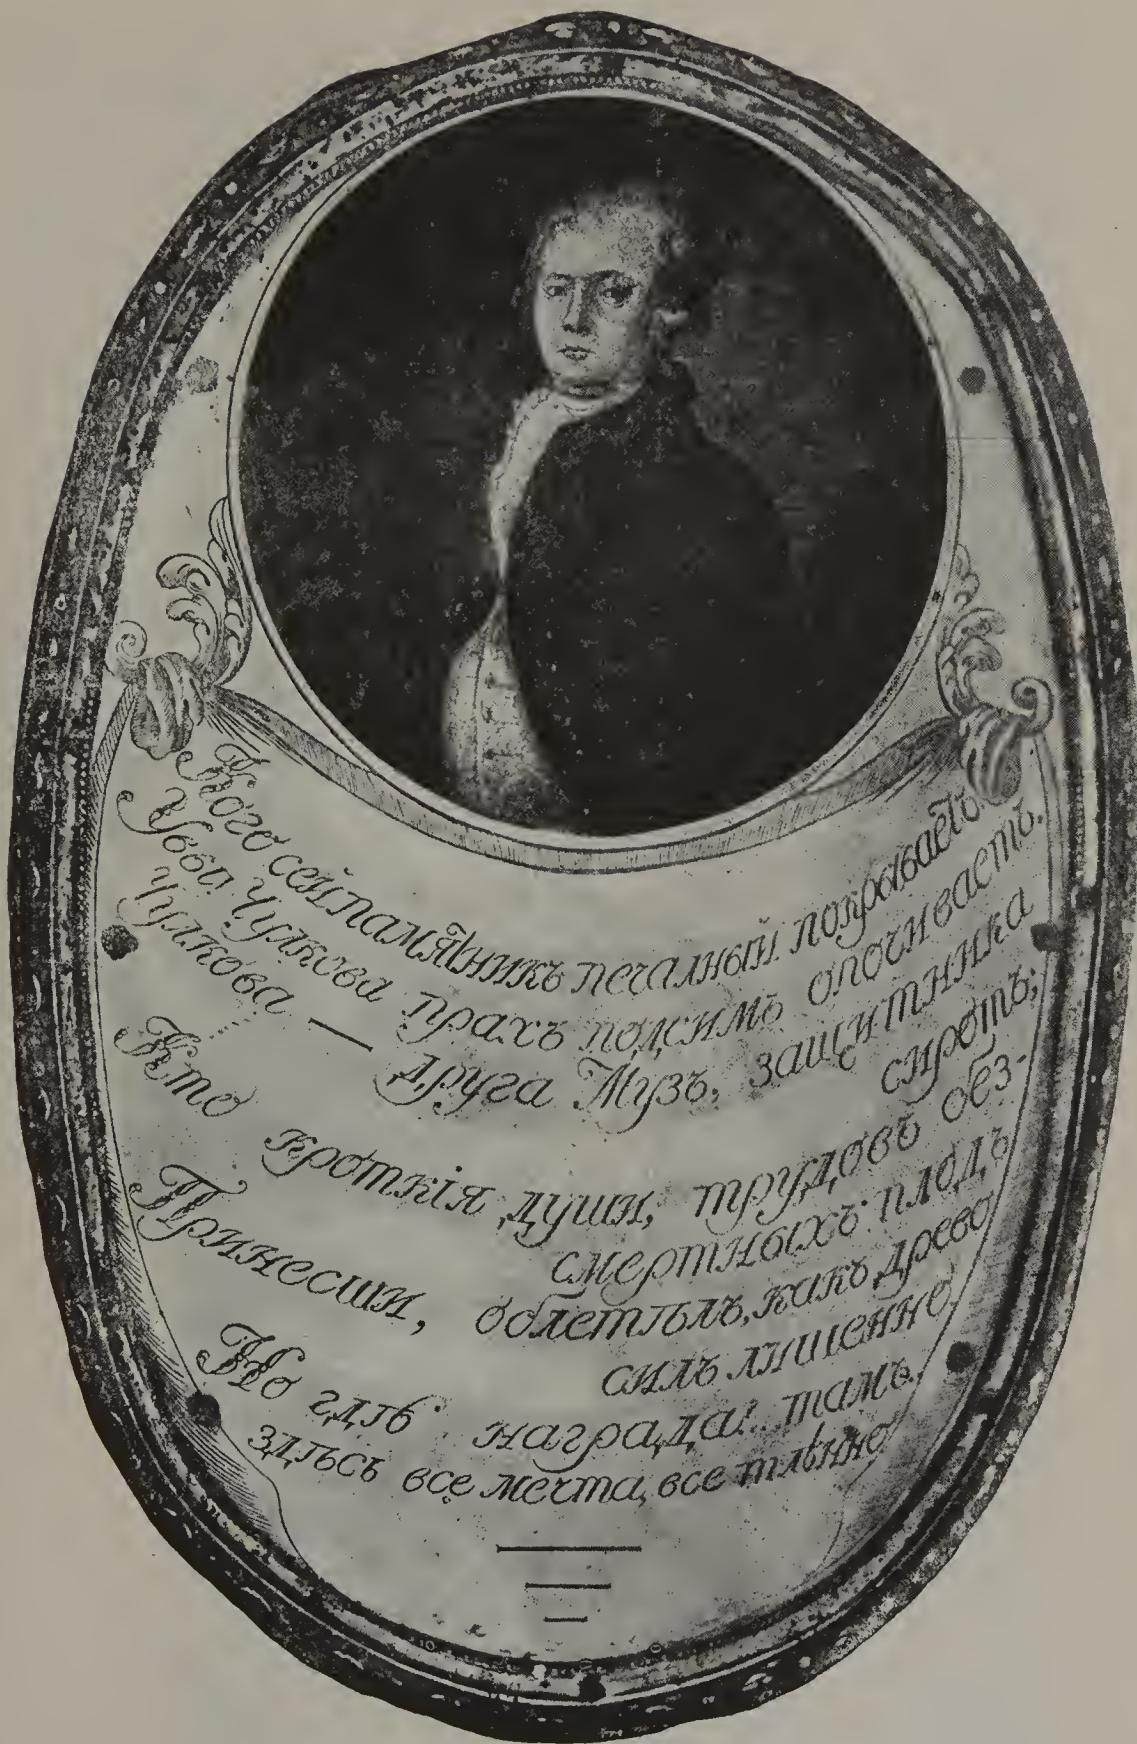 Кого сей памятникъ печалный покрываетъ
Увы Чулкова прахъ подсимъ опочиваетъ.
Чулкова — друга Музъ, защитника
сиротъ;
Кто кроткія души, трудовъ без-
смертныхъ плодъ
Принесши, облетѣлъ, какъ древо
силъ лишенно
Но гдѣ награда?.. тамъ.
здѣсь все мечта, все тлѣнно